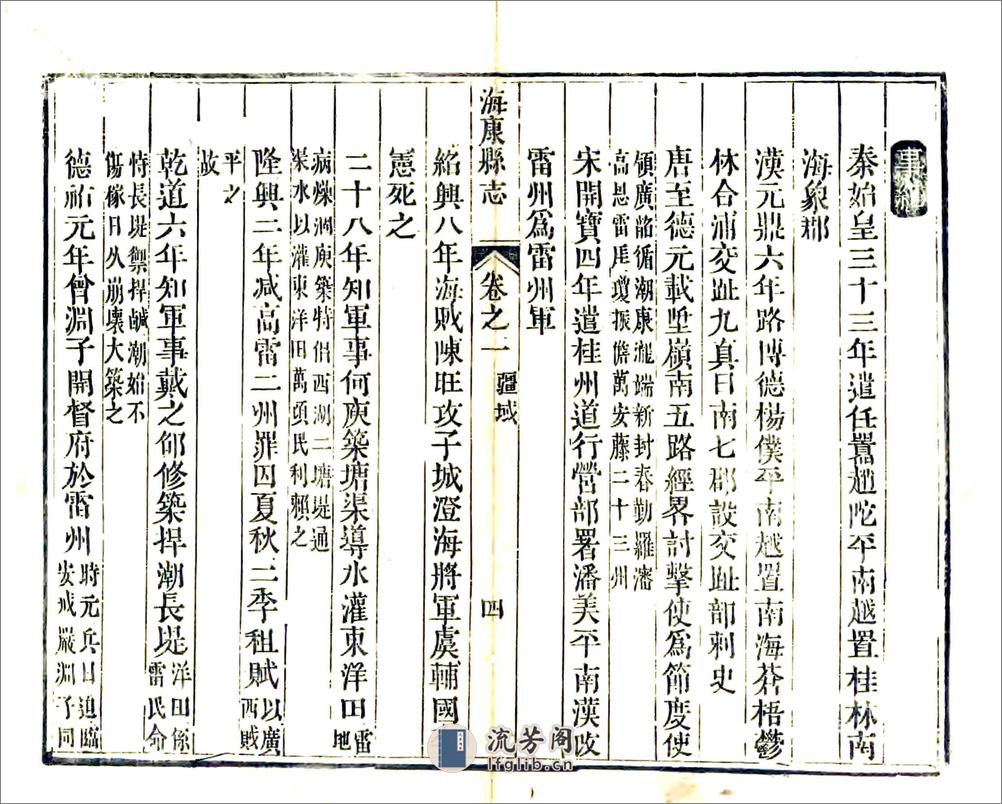 事紀
秦始皇三十三年遣任囂趙陀平南越置桂林南
海象郡
漢元鼎六年路博德楊僕平南越置南海蒼梧鬱
林合浦交趾九真日南七郡設交趾部刺史
唐至德元載陞嶺南五路經界討擊使爲節度使
領廣韶循潮康瀧端新封春勤羅瀋
高思雷厓瓊振儋萬安藤二十三州
宋開寶四年遣桂州道行營部署潘美平南漢改
雷州爲雷州軍
海康縣志
卷之一
疆域
四
紹興八年海賊陳旺攻子城澄海將軍虞輔國
憲死之
二十八年知軍事何庾築塘渠導水灌東洋田
雷地
病燥涸庾築特侶西湖二塘堤通
渠水以灌東洋田萬頃民利賴之
隆興二年减高雷二州罪囚夏秋二季租賦
以廣西賊
平之
故
乾道六年知軍事戴之邵修築捍潮長堤
洋田係
雷民命
恃長堤禦捍鹹潮始不
傷稼日久崩壞大築之
德祐元年曾淵子開督府於雷州
時元兵日迫臨
安戒嚴淵子同
流芳阁
lfglib.cn